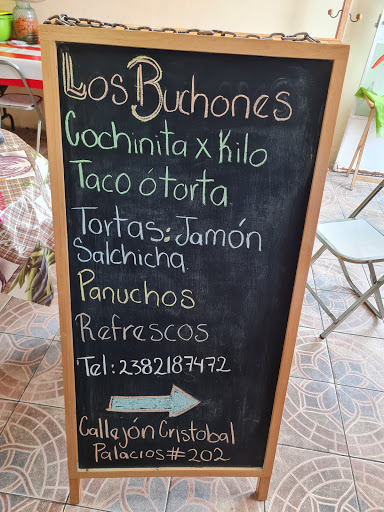 Los Buchones
Cochinita x Kilo
Taco ó torta
Tortas: Jamón
Salchicha
Panuchos
Refrescos
Tel: 2382187472
Callejón Cristobal
Palacios # 202